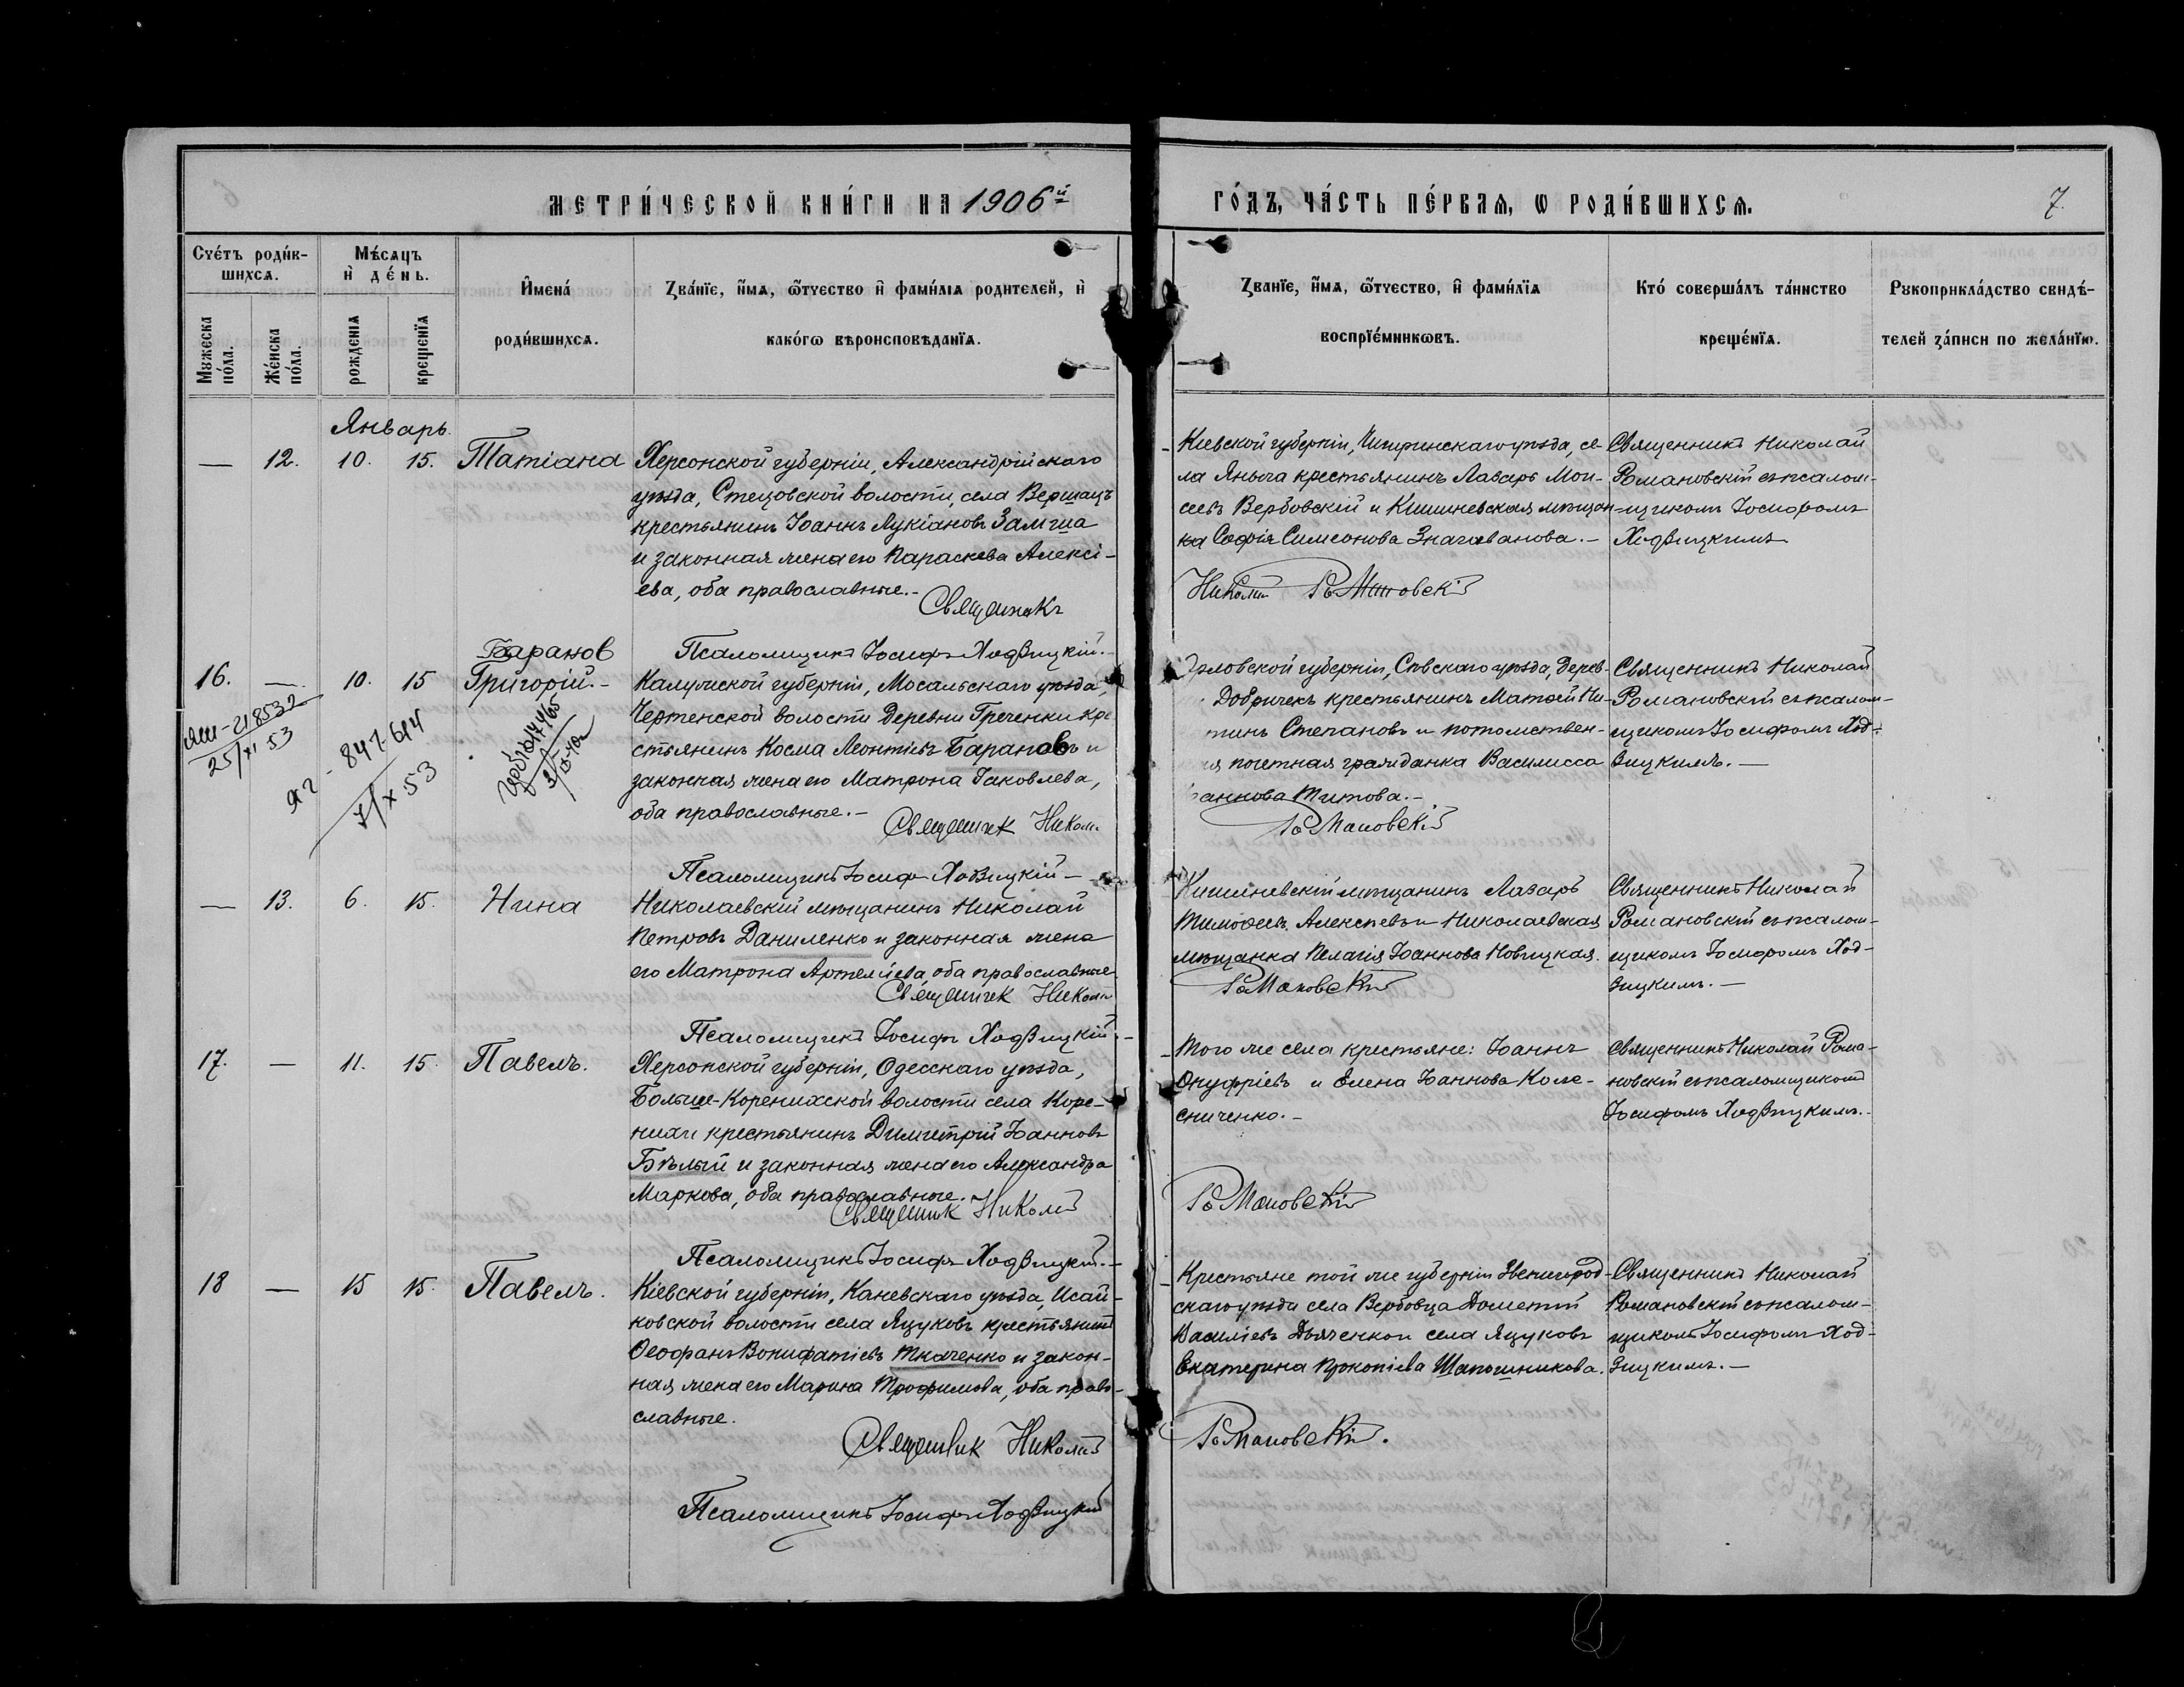 МЕТРИ́ЧЕСКОЙ КНИ́ГИ НА 1906й
ГО́ДЪ, ЧА́СТЬ ПЕ́РВАЯ, Ѡ РОДИ́ВШИХСЯ.
7.
Счетъ роди́в-
шихся.
Мѣ́сяцъ
и де́нь.
Имена́
роди́вшихся.
Зва́нїе, имя, ѻтчество и фами́лїя родителей, и
како́гѡ вѣроисповѣданїя.
Мꙋжеска
по́ла.
Же́нска
по́ла.
рожденїя
крещенїя
Званїе, имя, ѻтчество, и фами́лїя
воспрїе́мникѡвъ.
Кто́ соверша́лъ та́инство
креще́нїя.
Рꙋкоприкла́дство свидѣ́-
телей за́писи по жела́нїю.
Январь.
— 12. 10. 15. Татіана
Херсонской губерніи, Александрійскаго
уѣзда, Стецовской волости, села Вершацъ
крестьянинъ Іоаннъ Лукіановъ Замша
и законная жена его Параскева Алексі-
ева, оба православные.-
Священникъ
Псаломщикъ Іосифъ Ходзицкій.-
Кіевской губерніи, Чигиринскаго уѣзда, се-
ла Яныча крестьянинъ Лазарь Мои-
сеевъ Вербовский и Кишиневская мѣщан-
ка Софія Симеонова Значеванова.-
Николай Романовскій
Священникъ Николай
Романовскій съ псалом-
щикомъ Іосифомъ
Ходзицкимъ
Баранов
16. — 10. 15 Григорій.-
218532
25/XI 53
847614
7/X 53
Калужской губерніи, Мосальскаго уѣзда,
Чертенской волости Деревни Греченки кре
стьянинъ Косма Леонтіевъ Барановъ и
законная жена его Матрона Іаковлева,
оба православные.-
Священник Никол.
Псаломщикъ Іосифъ Ходзицкій —
Орловской губерніи, Сѣвскаго уѣзда, Дерев-
Добричекъ крестьянинъ Матѳей Ни-
тинъ Степановъ и потомствен-
ая почетная гражданка Василисса
Іоаннова Титова.-
Романовскій
Священникъ Николай
Романовскій съ псалом-
щикомъ Іосифомъ Ход-
зицкимъ.—
— 13. 6. 15. Нина
Николаевскій мѣщанинъ Николай
Петровъ Даниленко и законная жена
его Матрона Артеміева, оба православные
Священник Николай
Псаломщикъ Іосифъ Ходзицкій.-
Кишиневскій мѣщанинъ Лазарь
Тимоѳеевъ Алексѣевъ и Николаевская
мѣщанка Пелагія Іоаннова Новицкая.
Романовскій
Священникъ Николай
Романовскій съ псалом-
щикомъ Іосифомъ Ход-
зицкимъ.—
17. — 11. 15. Павелъ.
Херсонской губерніи, Одесскаго уѣзда,
Больше-Коренихской волости села Коре-
нихи крестьянинъ Димитрій Іоанновъ
Бѣлый и законная жена его Александра
Маркова, оба православные.
Священник Николай
Псаломщикъ Іосифъ Ходзицкій.-
Того же села крестьяне: Іоаннъ
Онуфріевъ и Елена Іоаннова Коле-
сниченко.-
Романовскій
Священникъ Николай Рома-
новскій съ псаломщикомъ
Іосифомъ Ходзицкимъ.-
18 — 15 15. Павелъ.
Кіевской губерніи, Каневскаго уѣзда, Исай-
ковской волости села Яцуковъ крестьянинъ
Ѳеофанъ Вонифатіевъ Ткаченко и закон-
ная жена его Марина Трофимова, оба право-
славные.
Священник Николай
Псаломщикъ Іосифъ Ходзицкій
Крестьяне той же губерніи Звенигород-
скаго уѣзда села Вербовца Дометій
Василіевъ Дьяченко и села Яцуковъ
Екатерина Прокопіева Шапошникова.
Романовскій.
Священникъ Николай
Романовскій съ псалом-
щикомъ Іосифомъ Ход-
зицкимъ.—